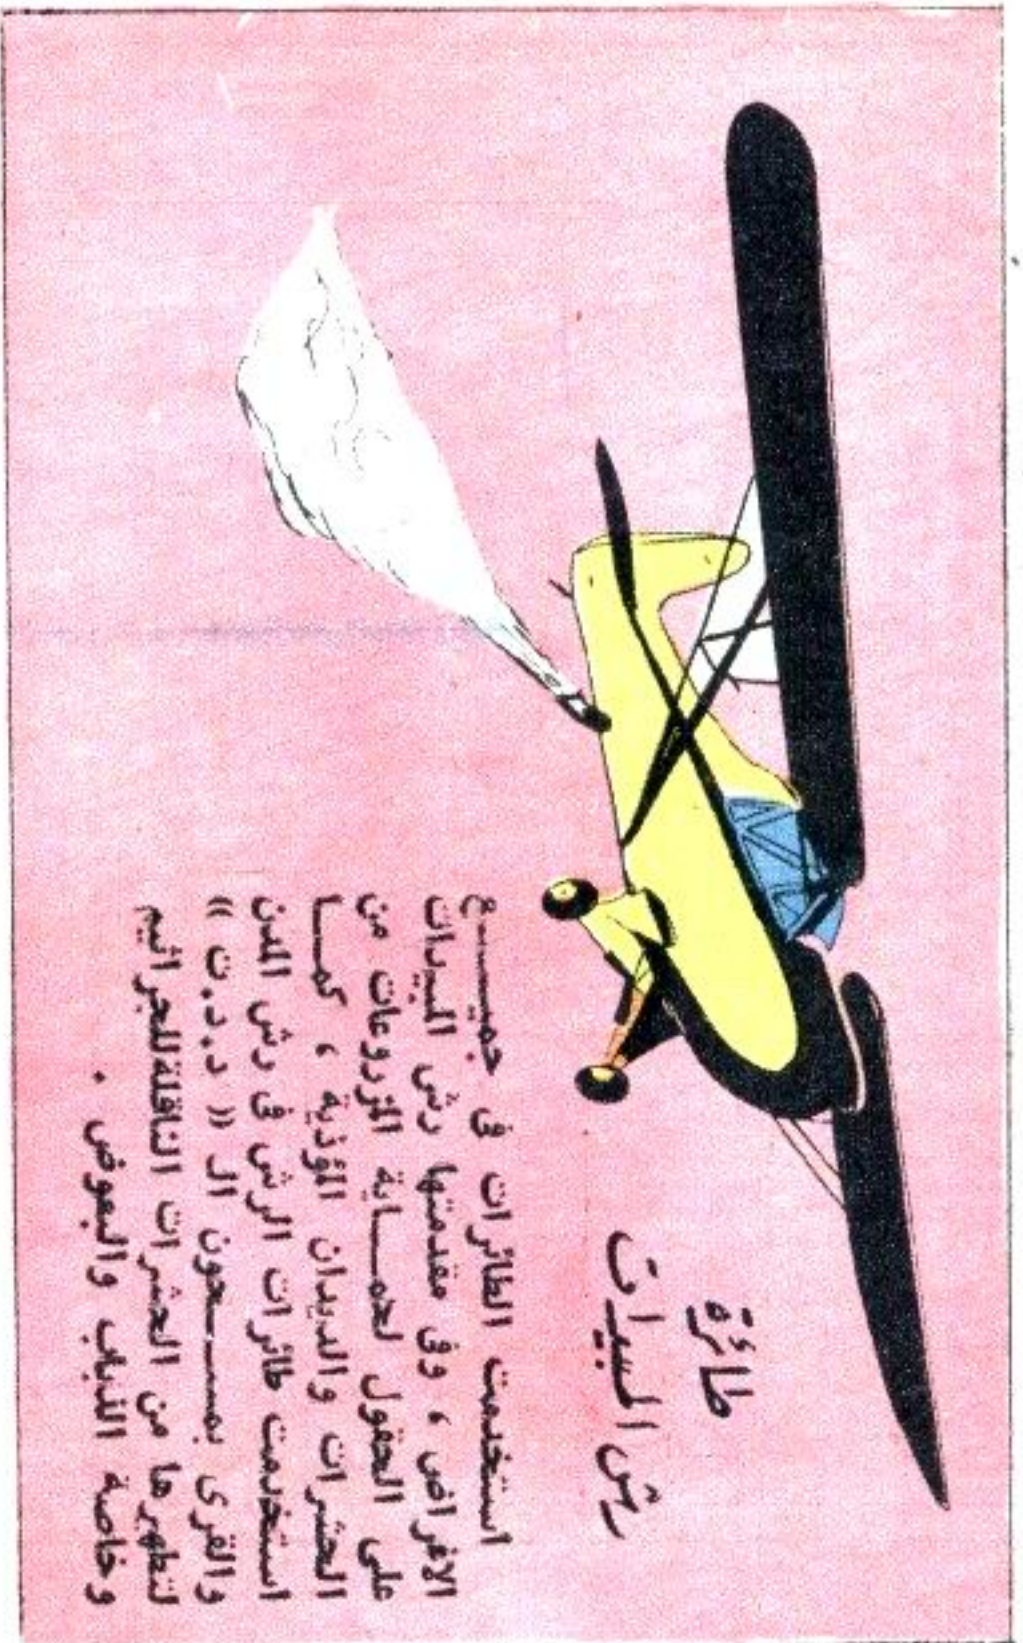 طائرة
رش المبيدات
استخدمت الطائرات في جميـــع
الاغراض ، وفي مقدمتها رش المبيدات
على الحقول لحمـــاية المزروعات من
الحشرات والديدان المؤذية ، كمـــا
استخدمت طائرات الرش في رش المدن
والقرى بمســـحون الـ (( د.د.ت ))
لتطهيرها من الحشرات الناقلة للجراثيم
وخاصة الذباب والبعوض .